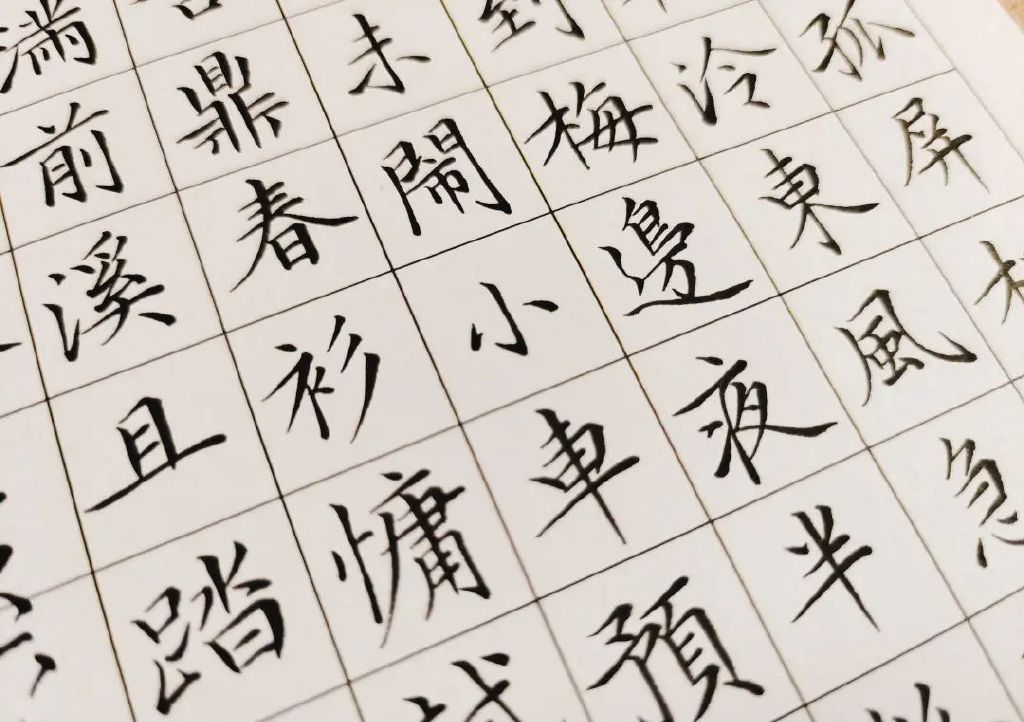 孤屏
泠東風急
到梅邊夜半
未鬧小車預
鼎春衫慵
滿前溪且踏